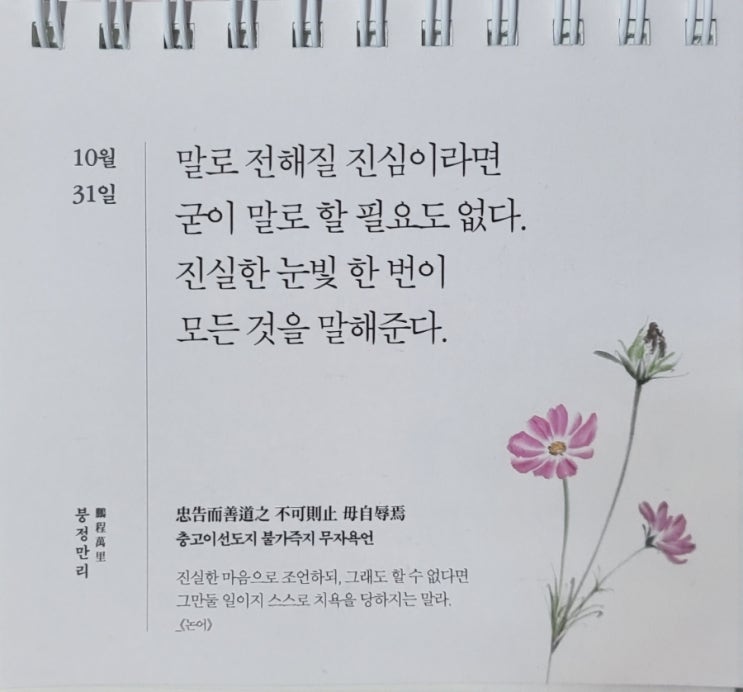 10월
31일
말로 전해질 진심이라면
굳이 말로 할 필요도 없다.
진실한 눈빛 한 번이
모든 것을 말해준다.
鵬程萬里
붕정만리
忠告而善道之 不可則止 毋自辱焉
충고이선도지 불가즉지 무자욕언
진실한 마음으로 조언하되, 그래도 할 수 없다면
그만둘 일이지 스스로 치욕을 당하지는 말라.
_《논어》